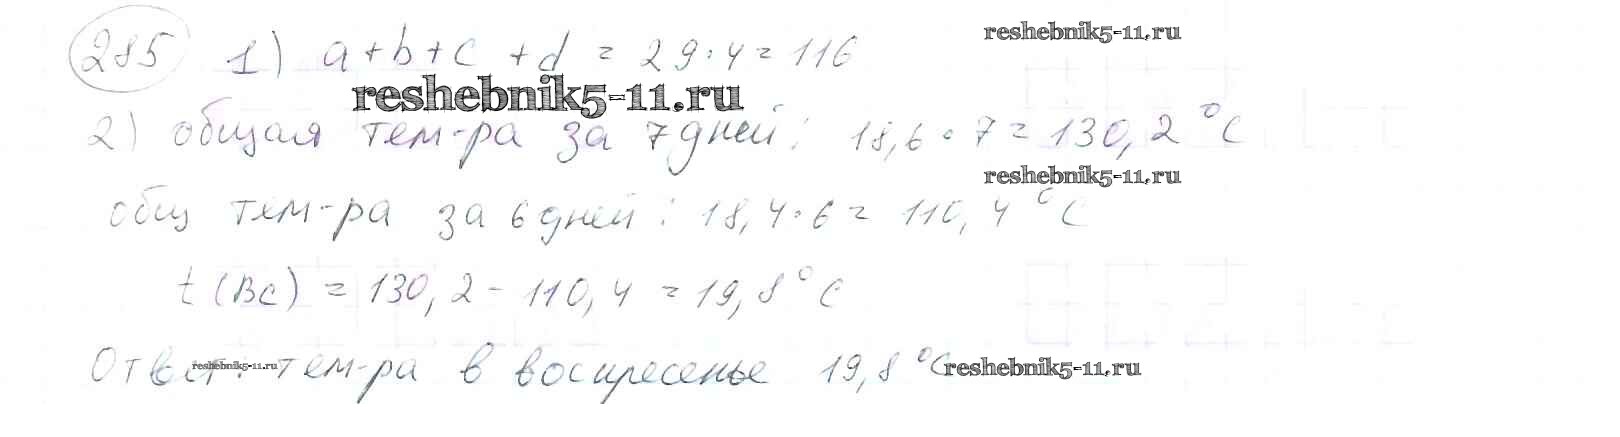 reshebnik5-11.ru
285 1) a+b+c +d = 29·4 = 116
reshebnik5-11.ru
2) общая тем-ра за 7 дней: 18,6 · 7 = 130,2 °C
reshebnik5-11.ru
общ тем-ра за 6 дней: 18,4·6 = 110,4 °C
t (Вс) = 130,2 - 110,4 = 19,8 °C
Ответ: тем-ра в воскресенье 19,8 °C
reshebnik5-11.ru
reshebnik5-11.ru